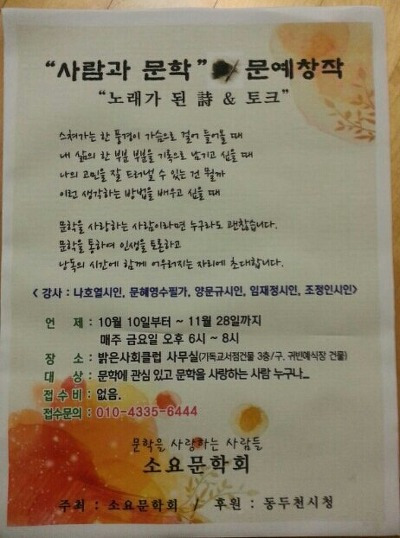 "사람과 문학" 문예창작
"노래가 된 詩 & 토크"
스쳐가는 한 풍경이 가슴으로 걸어 들어올 때
내 삶의 한 부분 부분을 기록으로 남기고 싶을 때
나의 고민을 잘 드러낼 수 있는 건 뭘까
이런 생각하는 방법을 배우고 싶을 때
문학을 사랑하는 사람이라면 누구라도 괜찮습니다.
문학을 통하여 인생을 토론하고
낭독의 시간에 함께 어우러지는 자리에 초대합니다.
< 강사 : 나호열시인, 문혜영수필가, 양문규시인, 임재정시인, 조정인시인>
언 제 : 10월 10일부터 ~ 11월 28일까지
매주 금요일 오후 6시 ~ 8시
장 소 : 밝은사회클럽 사무실(기독교서점건물 3층/구. 귀빈예식장 건물)
대 상 : 문학에 관심 있고 문학을 사랑하는 사람 누구나...
접 수 비 : 없음.
접수문의 : 010-4335-6444
문학을 사랑하는 사람들
소요문학회
주최 : 소요문학회 / 후원 : 동두천시청